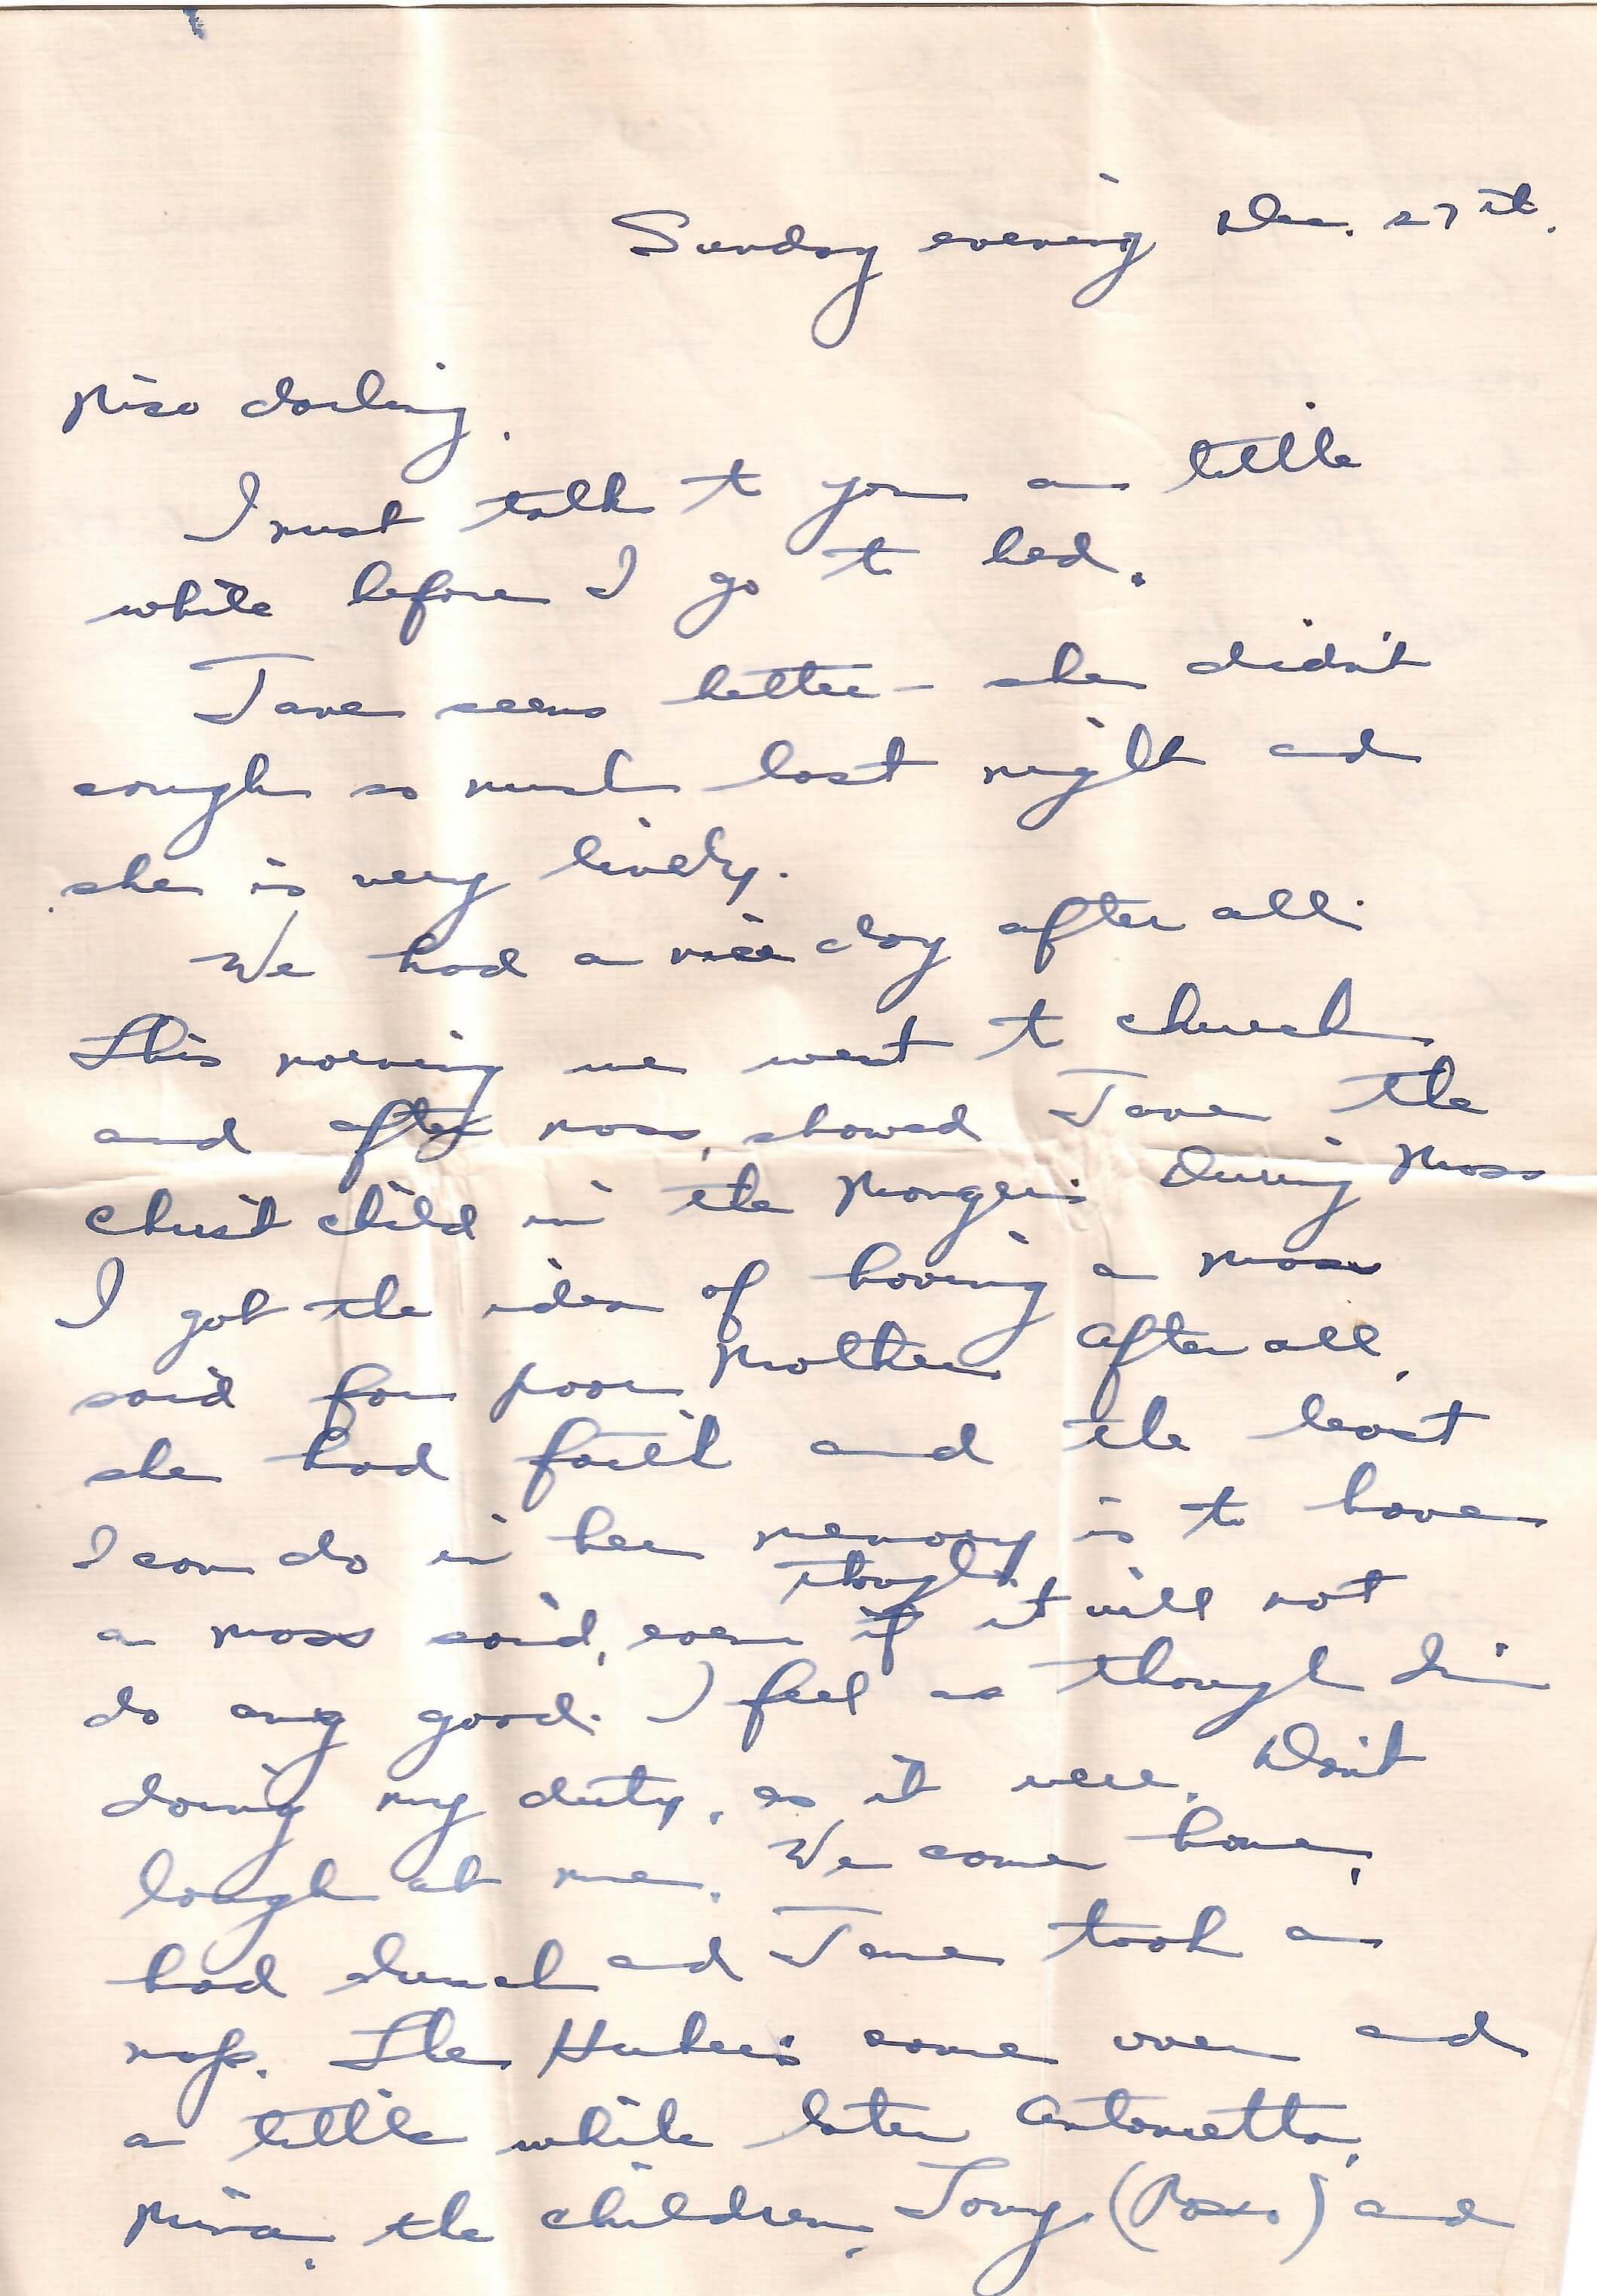 Sunday evening Dec. 27th.
darling,
I must talk to you a little
while before I go to bed.
Jane seems better – she didn't
cough so much last night and
she is very lively.
We had a nice day after all.
This morning we went to church
and after mass, showed Jane the
Christ child in the Manger. During Mass
I got the idea of having a mass
said for poor Mother. After all,
she had faith and the least
I can do in her memory is to have
a mass said, even if though it will not
do any good. I feel as though I'm
doing my duty, as it were. Don't
laugh at me. We came home,
had lunch and Jane took a
nap. The Hubers came over and
a little while later Antonetta,
Mina, the children, Tony (Ross) and